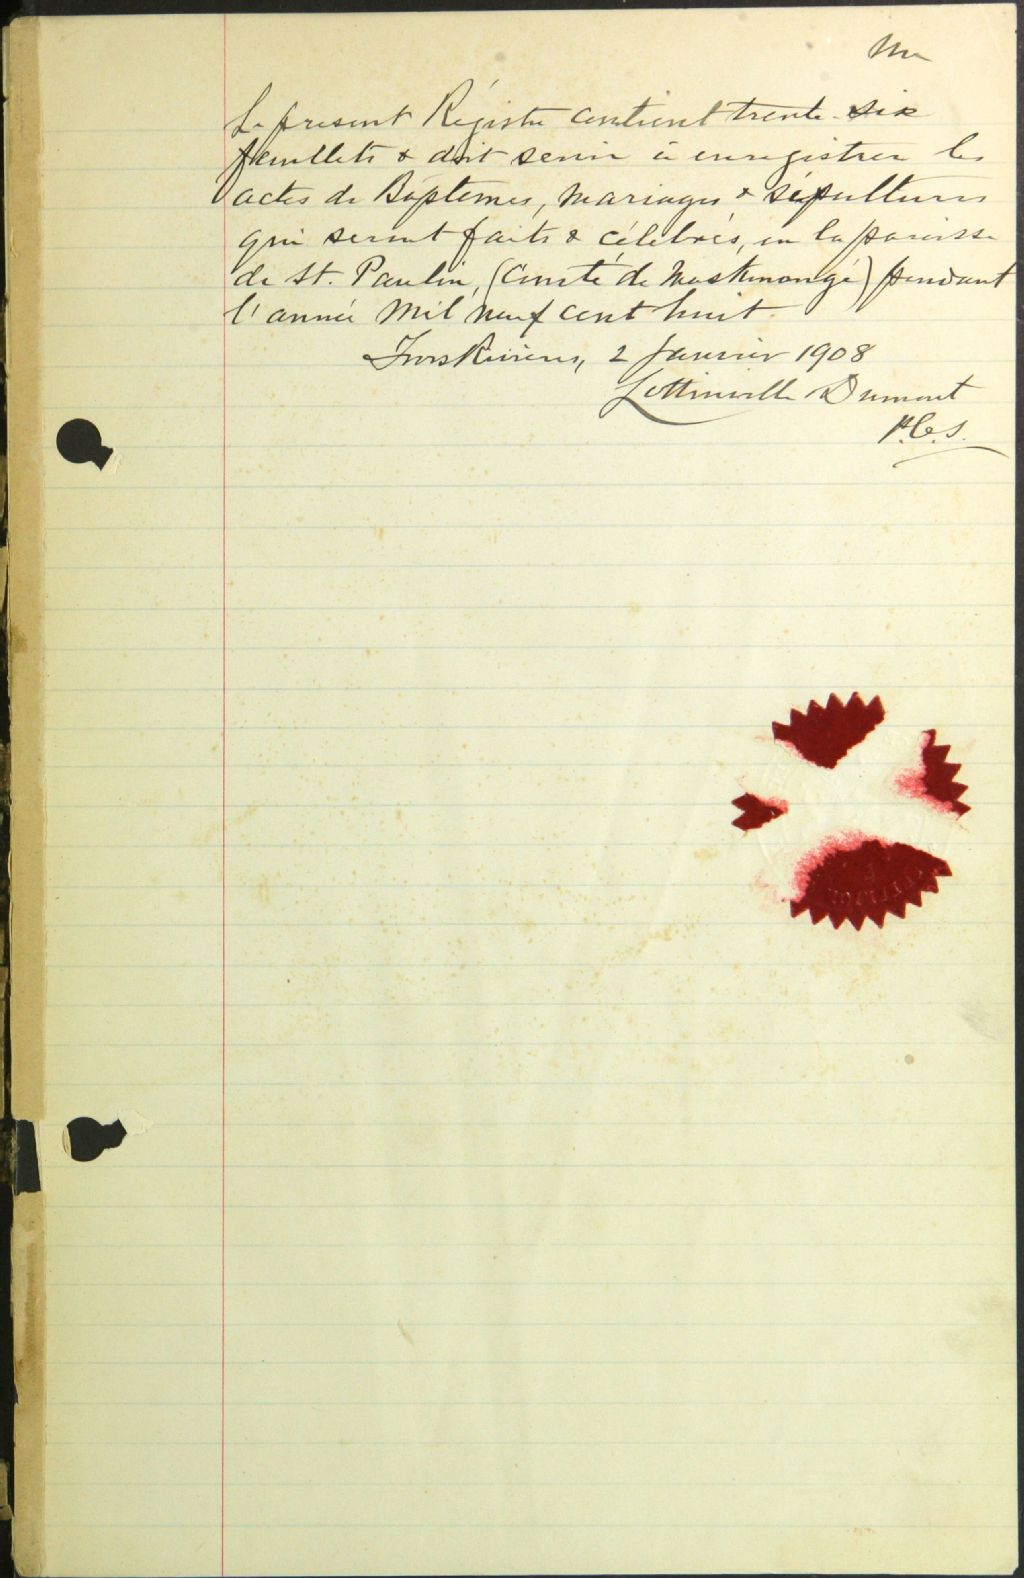 Un
Le présent Régistre contient trente-six
feuillets & doit servir à enregistrer les
actes de Baptemes, Mariages & sépultures
qui seront faits & célébrés, en la paroisse
de St. Paulin, (Comté de Maskinongé) pendant
l'année Mil neuf cent huit.
Trois Rivières, 2 Janvier 1908
Lottinville & Dumont
P.C.S.